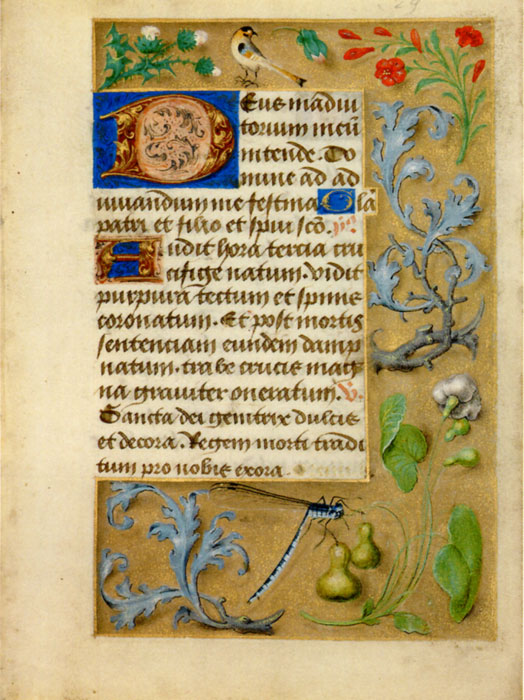 29
Deus in adiu
torium meū
intende. Do
mine ad ad
iuuandum me festina Glā
patri et filio et spiui scō.
Audit hora tercia cru
cifige natum. vidit
purpura tectum et spinis
coronatum. Et post mortis
sentenciam eundem damp
natum. trabe crucis mag
na graviter oneratum. V.
Sancta dei genitrix dulcis
et decora. Regem morti tradi
tum pro nobis exora.